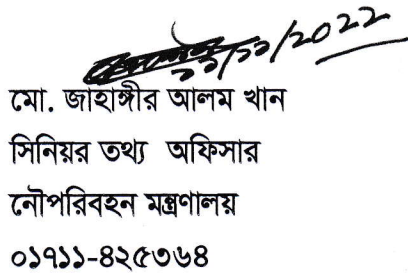 ২২/১১/২০২২
মো. জাহাঙ্গীর আলম খান
সিনিয়র তথ্য অফিসার
নৌপরিবহন মন্ত্রণালয়
০১৭১১-৪২৫৩৬৪